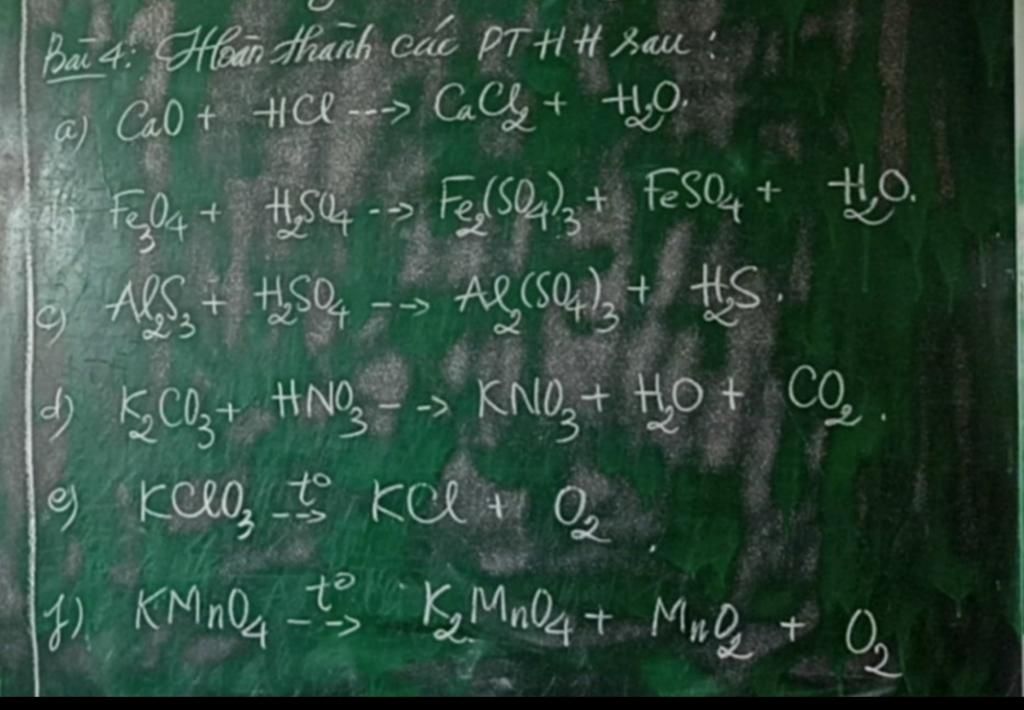 Bài 4: Hoàn thành các PTHH sau:
a) CaO + HCl ---> CaCl₂ + H₂O.
b) Fe₃O₄ + H₂SO₄ --> Fe₂(SO₄)₃ + FeSO₄ + H₂O.
c) Al₂S₃ + H₂SO₄ --> Al₂(SO₄)₃ + H₂S.
d) K₂CO₃ + HNO₃ --> KNO₃ + H₂O + CO₂.
e) KClO₃ --t°--> KCl + O₂.
f) KMnO₄ --t°--> K₂MnO₄ + MnO₂ + O₂